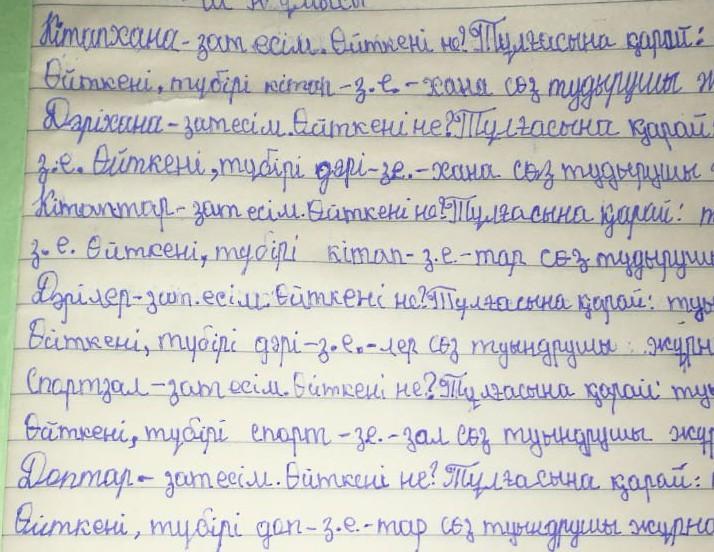 Кітапхана - зат есім. Өйткені не? Тұлғасына қарай:
Өйткені, түбірі кітап - з.е. - хана сөз тудырушы ж
Дәріхана - зат есім. Өйткені не? Тұлғасына қарай
з.е. Өйткені, түбірі дәрі - зе. - хана сөз тудырушы
Кітаптар - зат есім. Өйткені не? Тұлғасына қарай: т
з.е. Өйткені, түбірі кітап - з.е - тар сөз тудыруш
Дәрілер - зат.есім. Өйткені не? Тұлғасына қарай: туы
Өйткені, түбірі дәрі - з.е. - лер сөз туындрушы журн
Спортзал - зат есім. Өйткені не? Тұлғасына қарай: ту
Өйткені, түбірі спорт - зе. - зал сөз туындрушы жур
Доптар - зат есім. Өйткені не? Тұлғасына қарай:
Өйткені, түбірі доп - з.е. - тар сөз туындрушы журна